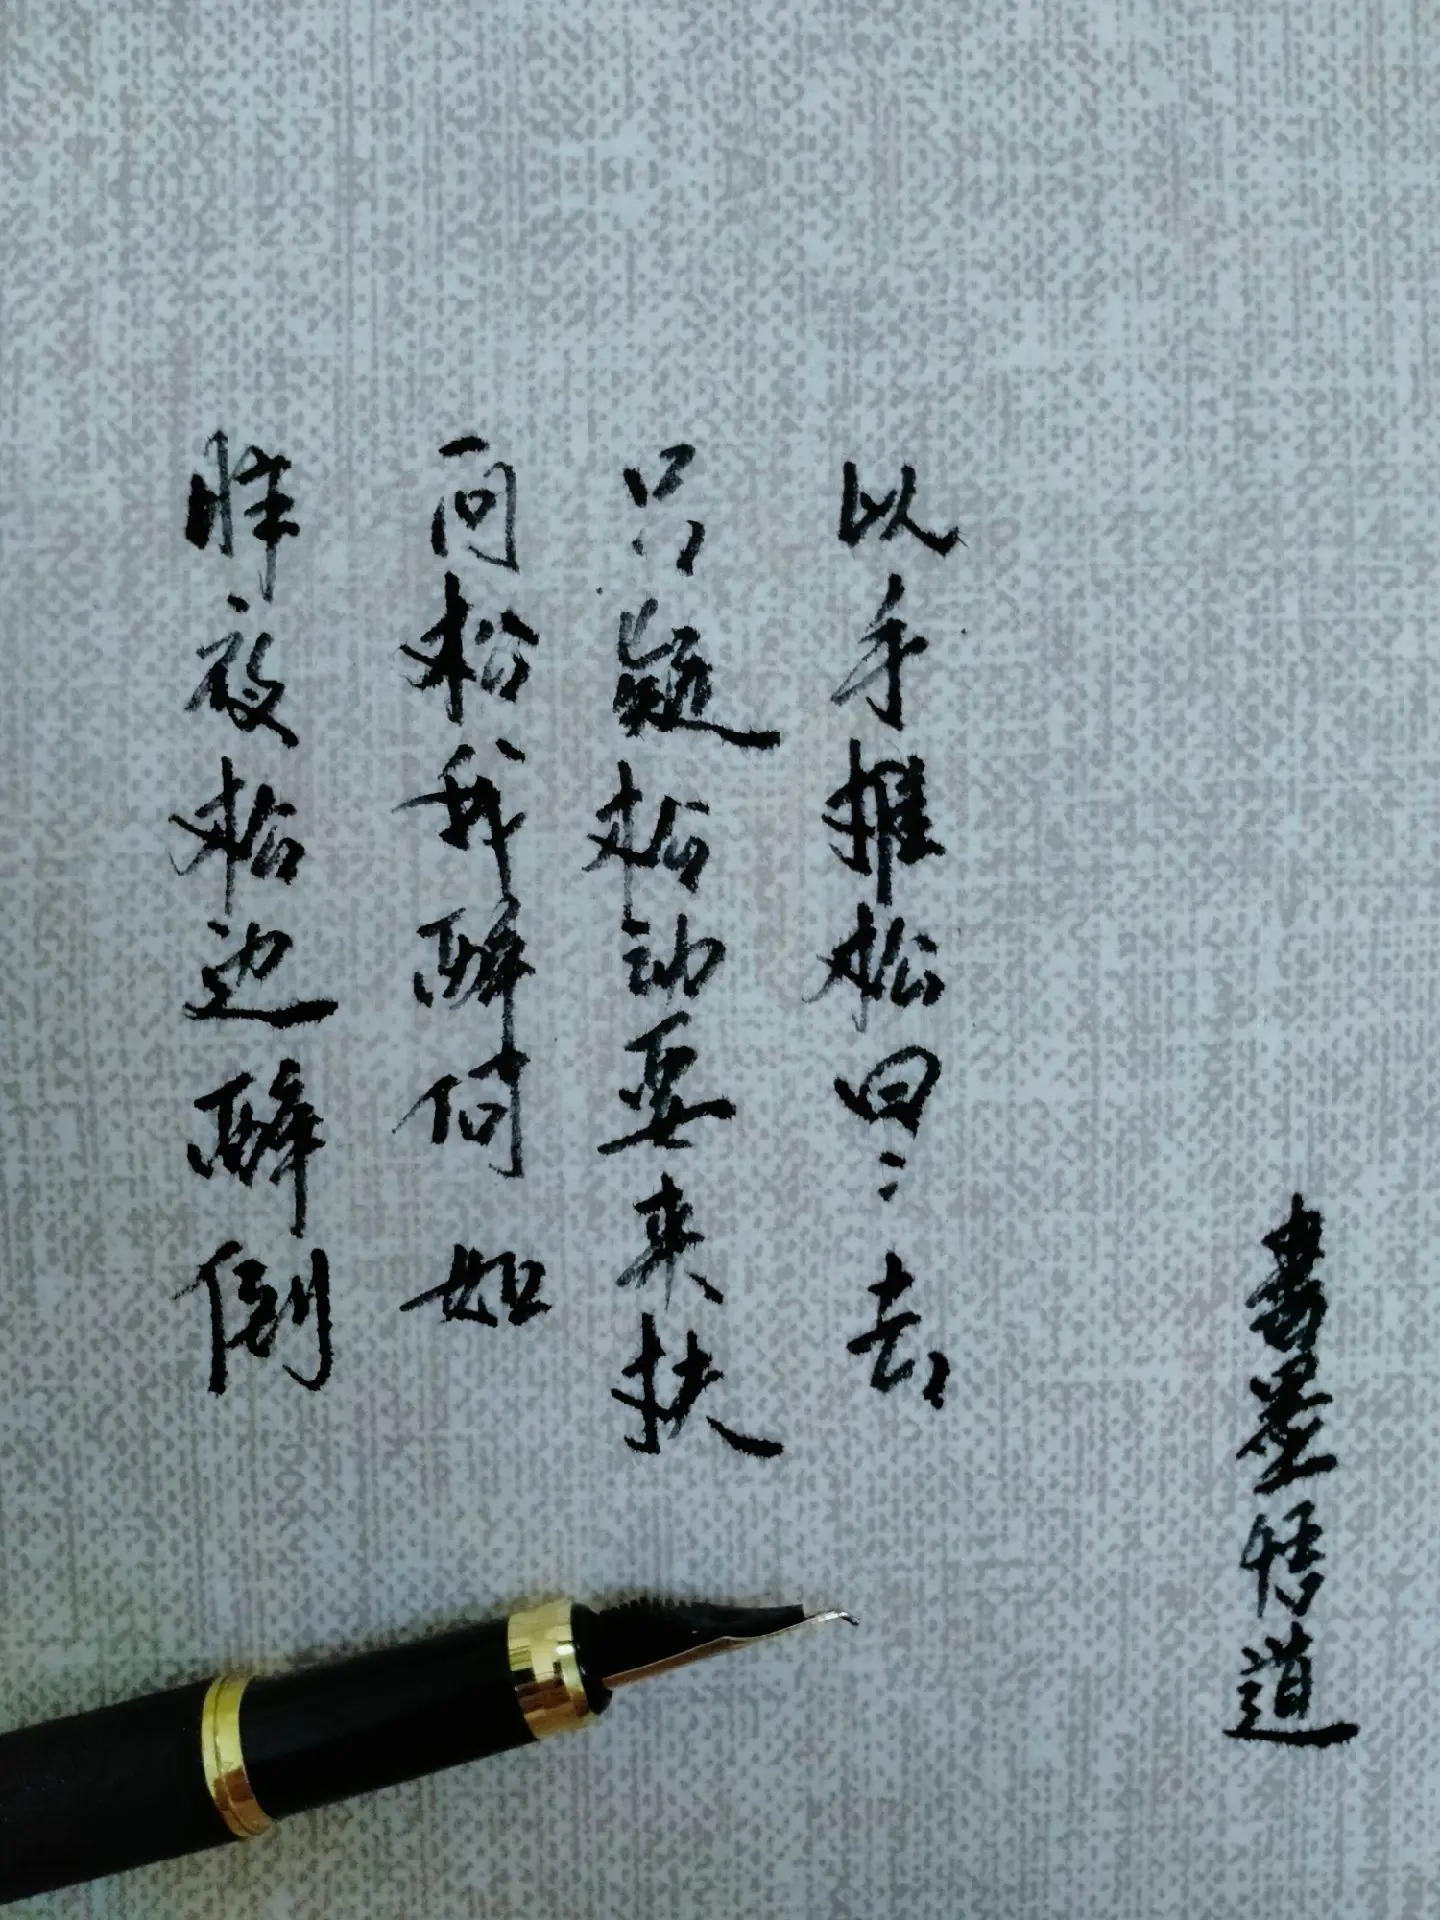 昨夜松边醉倒
问松我醉何如
只疑松动要来扶
以手推松曰:去
書墨悟道